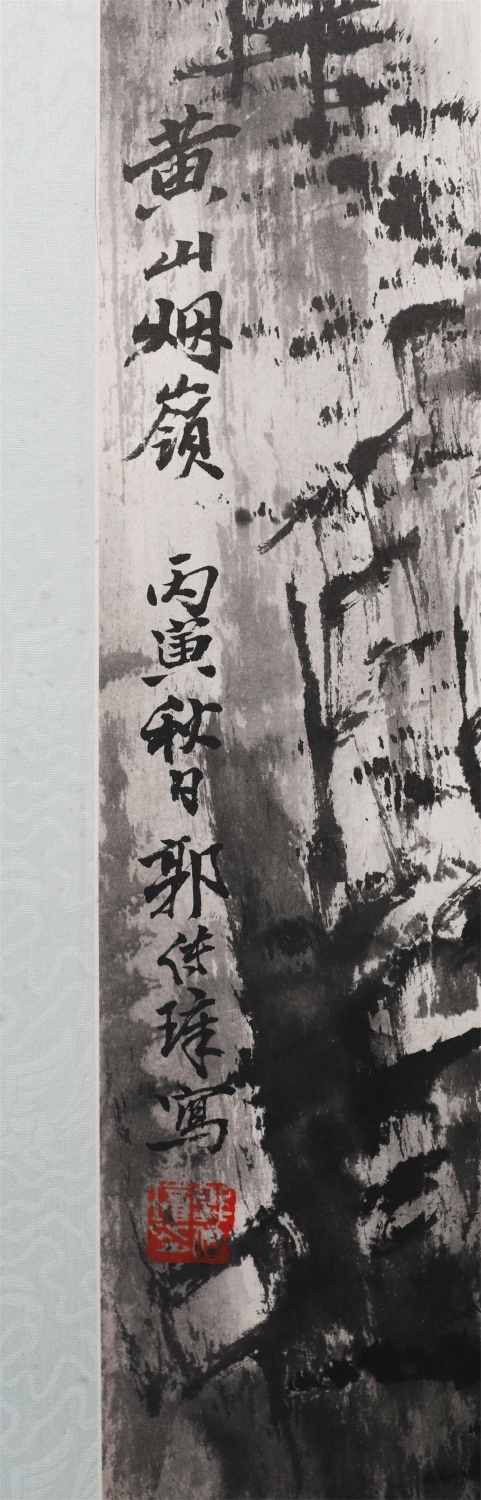 黄山烟嶺 丙寅秋日 郭傳璋寫